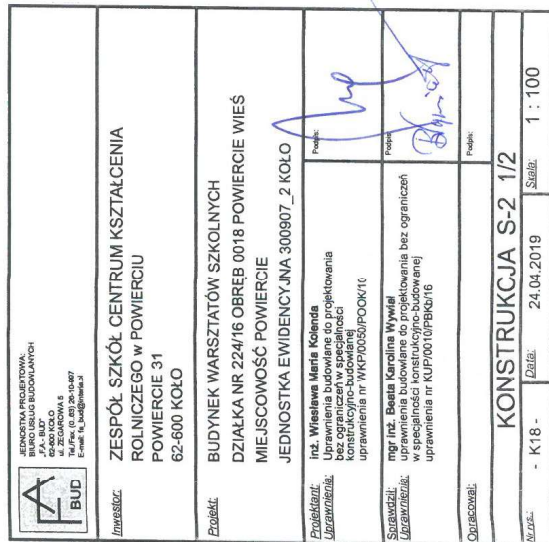 FA
BUD
JEDNOSTKA PROJEKTOWA:
BIURO USŁUG BUDOWLANYCH
„F.A. - BUD”
62-600 KOŁO
ul. ZEGAROWA 5
Tel./Fax: (0..63) 26-10-407
E-mail: fa_bud@interia.pl
Inwestor:
ZESPÓŁ SZKÓŁ CENTRUM KSZTAŁCENIA
ROLNICZEGO w POWIERCIU
POWIERCIE 31
62-600 KOŁO
Projekt:
BUDYNEK WARSZTATÓW SZKOLNYCH
DZIAŁKA NR 224/16 OBRĘB 0018 POWIERCIE WIEŚ
MIEJSCOWOŚĆ POWIERCIE
JEDNOSTKA EWIDENCYJNA 300907_2 KOŁO
Projektant:
Uprawnienia:
inż. Wiesława Maria Kolenda
Uprawnienia budowlane do projektowania
bez ograniczeń w specjalności
konstrukcyjno-budowlanej
uprawnienia nr WKP/0050/POOK/10
Podpis:
Sprawdził:
Uprawnienia:
mgr inż. Beata Karolina Wywiał
uprawnienia budowlane do projektowania bez ograniczeń
w specjalności konstrukcyjno-budowlanej
uprawnienia nr KUP/0010/PBKb/16
Podpis:
Opracował:
Podpis:
KONSTRUKCJA S-2 1/2
Nr rys.: - K18 - Data: 24.04.2019 Skala: 1 : 100